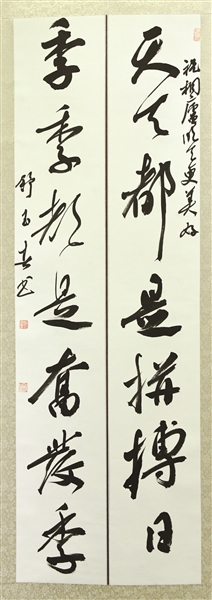 祝桐廬明天更美好
天天都是拼搏日
季季都是奮發季
舒春书